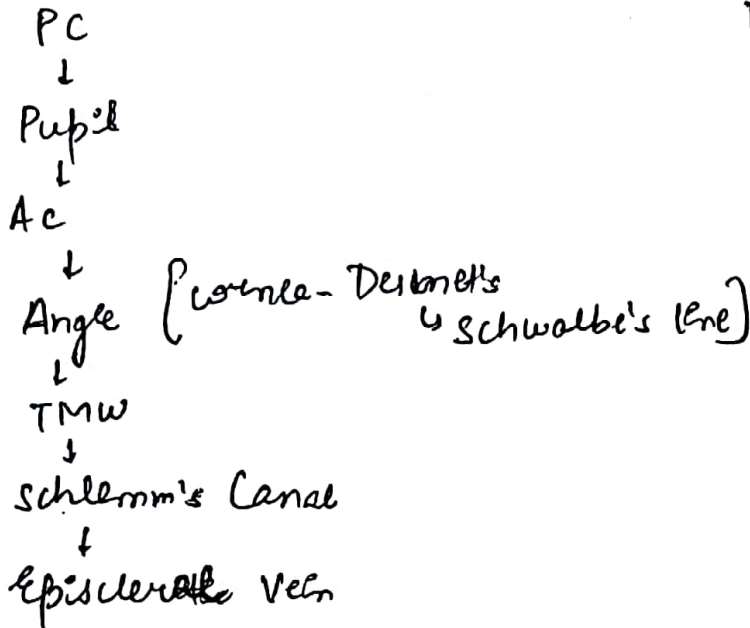 PC
↓
Pupil
↓
Ac
↓
Angle [cornea - Desbmet's
↳ Schwalbe's line]
↓
TMW
↓
Schlemm's Canal
↓
Episcleral Vein